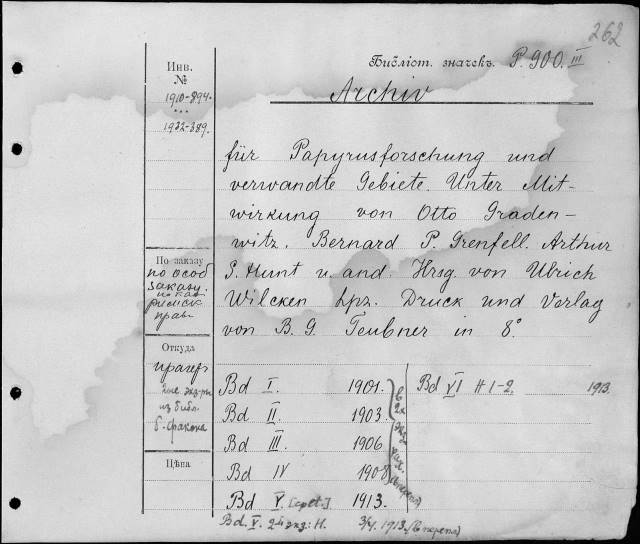 262
Библіот. значекъ. P. 900. III
Инв.
№
1910-894.
1932-389.
Archiv
für Papyrusforschung und
verwandte Gebiete. Unter Mit-
wirkung von Otto Graden-
witz. Bernard P. Grenfell. Arthur
S. Hunt u. and. Hrsg. von Ulrich
Wilcken Lpz. Druck und Verlag
von B. G. Teubner in 8°
По заказу
по особ
заказу.
прав
Откуда
прагеръ
2ые экз-ры
из библ.
Цѣна
Bd I. 1901.
Bd II. 1903.
Bd III. 1906
Bd IV 1908
Bd V. 1913.
Bd. V. 2й экз: H. 3/4. 1913. (в перепл)
Bd VI H 1-2. 1913.
в
2х
экз